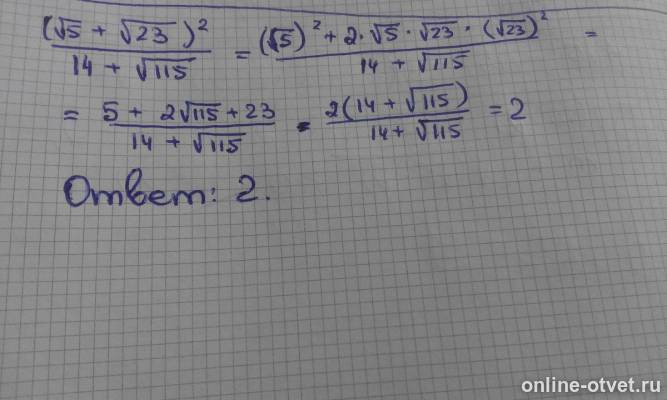 (√5 + √23)² / 14 + √115 = (√5)² + 2·√5·√23·(√23)² / 14 + √115 =
= 5 + 2√115 + 23 / 14 + √115 = 2(14 + √115) / 14 + √115 = 2
Ответ: 2.
online-otvet.ru